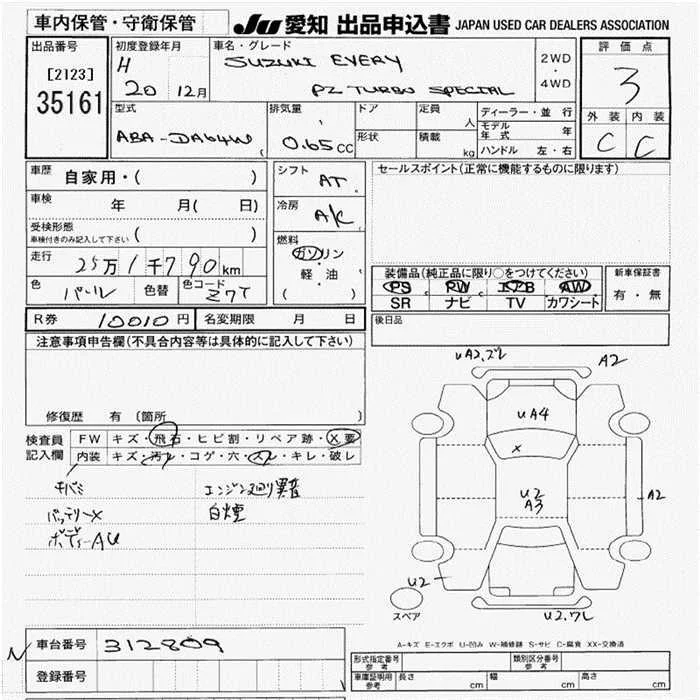 車内保管・守衛保管
JU 愛知 出品申込書 JAPAN USED CAR DEALERS ASSOCIATION
出品番号
[2123]
35161
初度登録年月
H
20 12月
車名・グレード
SUZUKI EVERY
PZ TURBO SPECIAL
2WD
・
4WD
評価点
3
外装 内装
C C
型式
ABA-DA64W
排気量
0.65CC
ドア
形状
定員
人
積載
kg
ディーラー・並行
モデル年式 年
ハンドル 左・右
車歴
自家用・( )
車検
年 月( 日)
受検形態
車検付きのみ記入して下さい ( )
走行
25万1千790km
色
パール
色替
色コード
Z7T
シフト
AT
冷房
A/C
燃料
ガソリン
軽・油
( )
セールスポイント(正常に機能するものに限ります)
装備品(純正品に限り○をつけてください)
PS PW エアB AW
SR ナビ TV カワシート
新車保証書
有・無
R券 10010円 名変期限 月 日
後日品
注意事項申告欄(不具合内容等は具体的に記入して下さい)
修復歴 有(箇所 )
検査員
記入欄
FW キズ・飛石・ヒビ割・リペア跡・X要
内装 キズ・汚レ・コゲ・穴・スレ・キレ・破レ
エンジン廻り異音
バッテリーX 白煙
ボディーAU
UA2,ズレ
A2
UA4
X
U2
A3
A2
U2
U2,ワレ
スペア
A-キズ E-エクボ U-凹み W-補修跡 S-サビ C-腐食 XX-交換済
N
車台番号 312809
登録番号
形式指定番号
参考
類別区分番号
参考
車庫証明用
参考
長さ cm 幅 cm 高さ cm